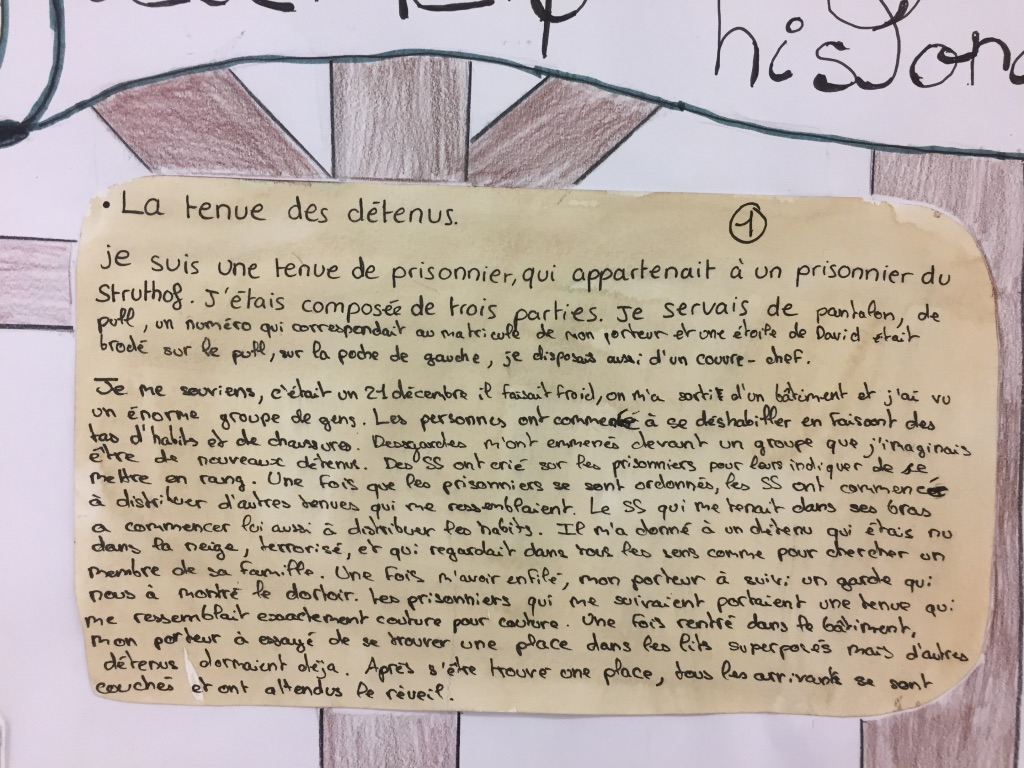 histor
• La tenue des détenus.
1
je suis une tenue de prisonnier, qui appartenait à un prisonnier du
Struthof. J'étais composée de trois parties. Je servais de pantalon, de
pull, un numéro qui correspondait au matricule de mon porteur et une étoile de David était
brodé sur le pull, sur la poche de gauche, je disposais aussi d'un couvre-chef.
Je me souviens, c'était un 21 décembre il faisait froid, on m'a sorti d'un bâtiment et j'ai vu
un énorme groupe de gens. Les personnes ont commencé à se déshabiller en faisant des
tas d'habits et de chaussures. Des gardes m'ont emmenés devant un groupe que j'imaginais
être de nouveaux détenus. Des SS ont crié sur les prisonniers pour leurs indiquer de se
mettre en rang. Une fois que les prisonniers se sont ordonnés, les SS ont commencé
à distribuer d'autres tenues qui me ressemblaient. Le SS qui me tenait dans ses bras
a commencer lui aussi à distribuer les habits. Il m'a donné à un détenu qui étais nu
dans la neige, terrorisé, et qui regardait dans tous les sens comme pour chercher un
membre de sa famille. Une fois m'avoir enfilé, mon porteur à suivi un garde qui
nous à montré le dortoir. Les prisonniers qui me suivaient portaient une tenue qui
me ressemblait exactement couture pour couture. Une fois rentré dans le bâtiment,
mon porteur à essayé de se trouver une place dans les lits superposés mais d'autres
détenus dormaient déja. Après s'être trouver une place, tous les arrivants se sont
couchés et ont attendus le réveil.